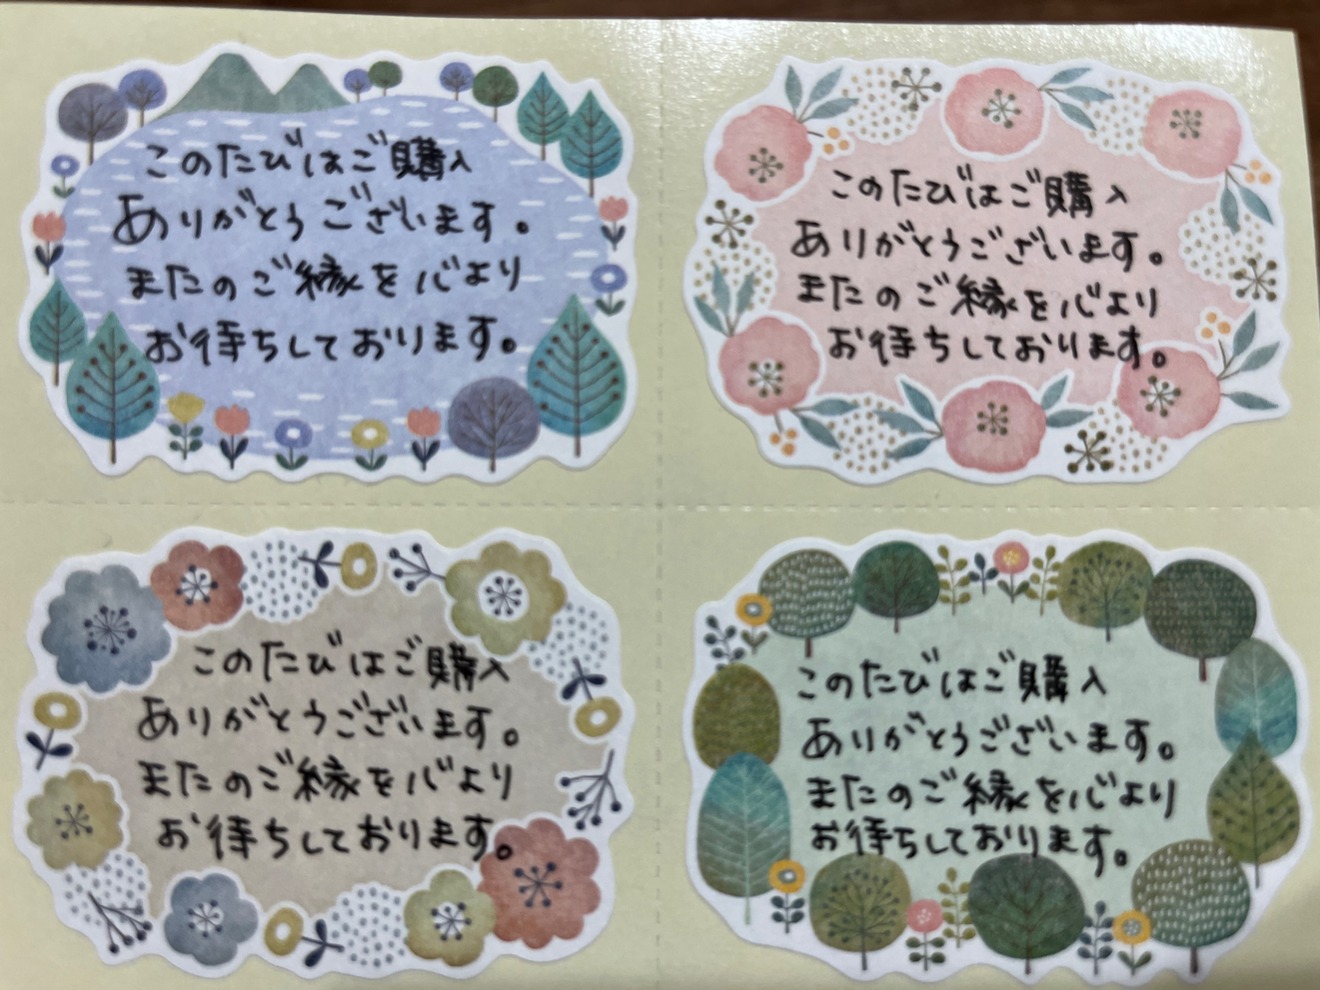 このたびはご購入
ありがとうございます。
またのご縁を心より
お待ちしております。
このたびはご購入
ありがとうございます。
またのご縁を心より
お待ちしております。
このたびはご購入
ありがとうございます。
またのご縁を心より
お待ちしております。
このたびはご購入
ありがとうございます。
またのご縁を心より
お待ちしております。